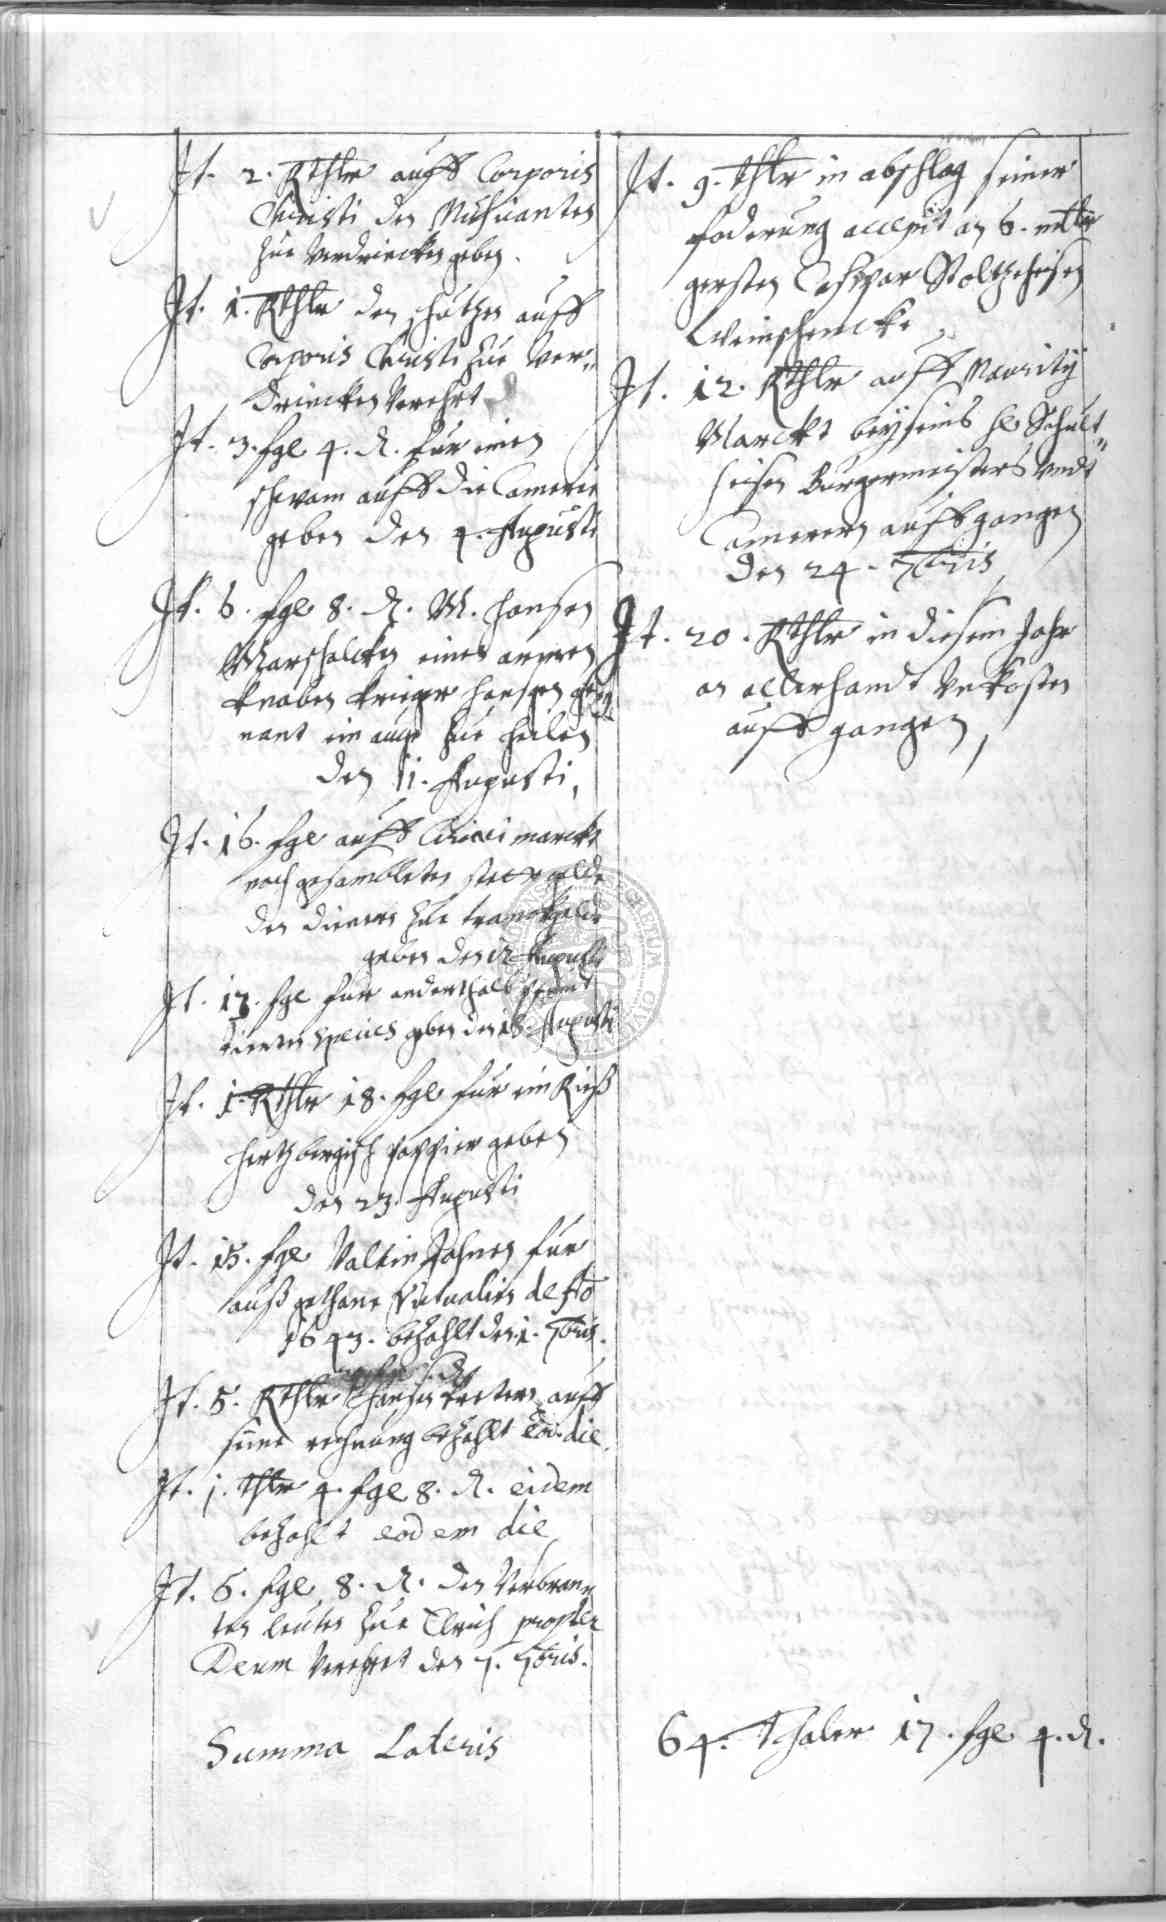 It. 2. Rthlr auff Corporis
Christi den Musicanten
zue verdrincken geben.
It. 1. Rthlr den auff
Corporis Christi zue ver-
drincken verehrt
It. 3. sgl 4. d. für einen
auff die Camerie
geben den 4. Augusti
It. 6. sgl 8. d. M. Hansen
Marschalcken eines armen
knaben krieger Hansen ge-
nant ein aug zue heilen
den 11. Augusti,
It. 16. sgl auff Ciriaci marckt
nach gesambleten gelde
den dienern zue tranckgelde
geben den 12 Augusti
It. 17. sgl für anderthalb pfundt
species geben den 18. Augusti
It. 1. Rthlr 18. sgl für ein Rieß
Hertzbergisch pappier geben
den 23. Augusti
It. 15. sgl Valtin Johnen für
auß gethane Victualien de Ao
1643. bezahlt den 1. 7bris.
It. 5. Rthlr Hansen auff
seine rechnung bezahlt eo. die.
It. 1. thlr 4. sgl 8. d. eidem
bezahlt eodem die
It. 6. sgl 8. d. den Verbran-
ten leuten zue Elrich propter
Deum verehret den 7. 7bris.
Summa Lateris
It. 9. thlr in abschlag seiner
foderung accepit an 6. mltr
gersten Caspar Stoltzeheisen
Weinschencke
It. 12. Rthlr auff Maurity
Marckt beyseins H. Schult-
heisen Burgermeisters undt
Camerern auffgangen
den 24. 7bris
It. 20. Rthlr in diesem Jahr
an allerhandt unkosten
auff gangen,
64. Thaler 17. sgl 4. d.